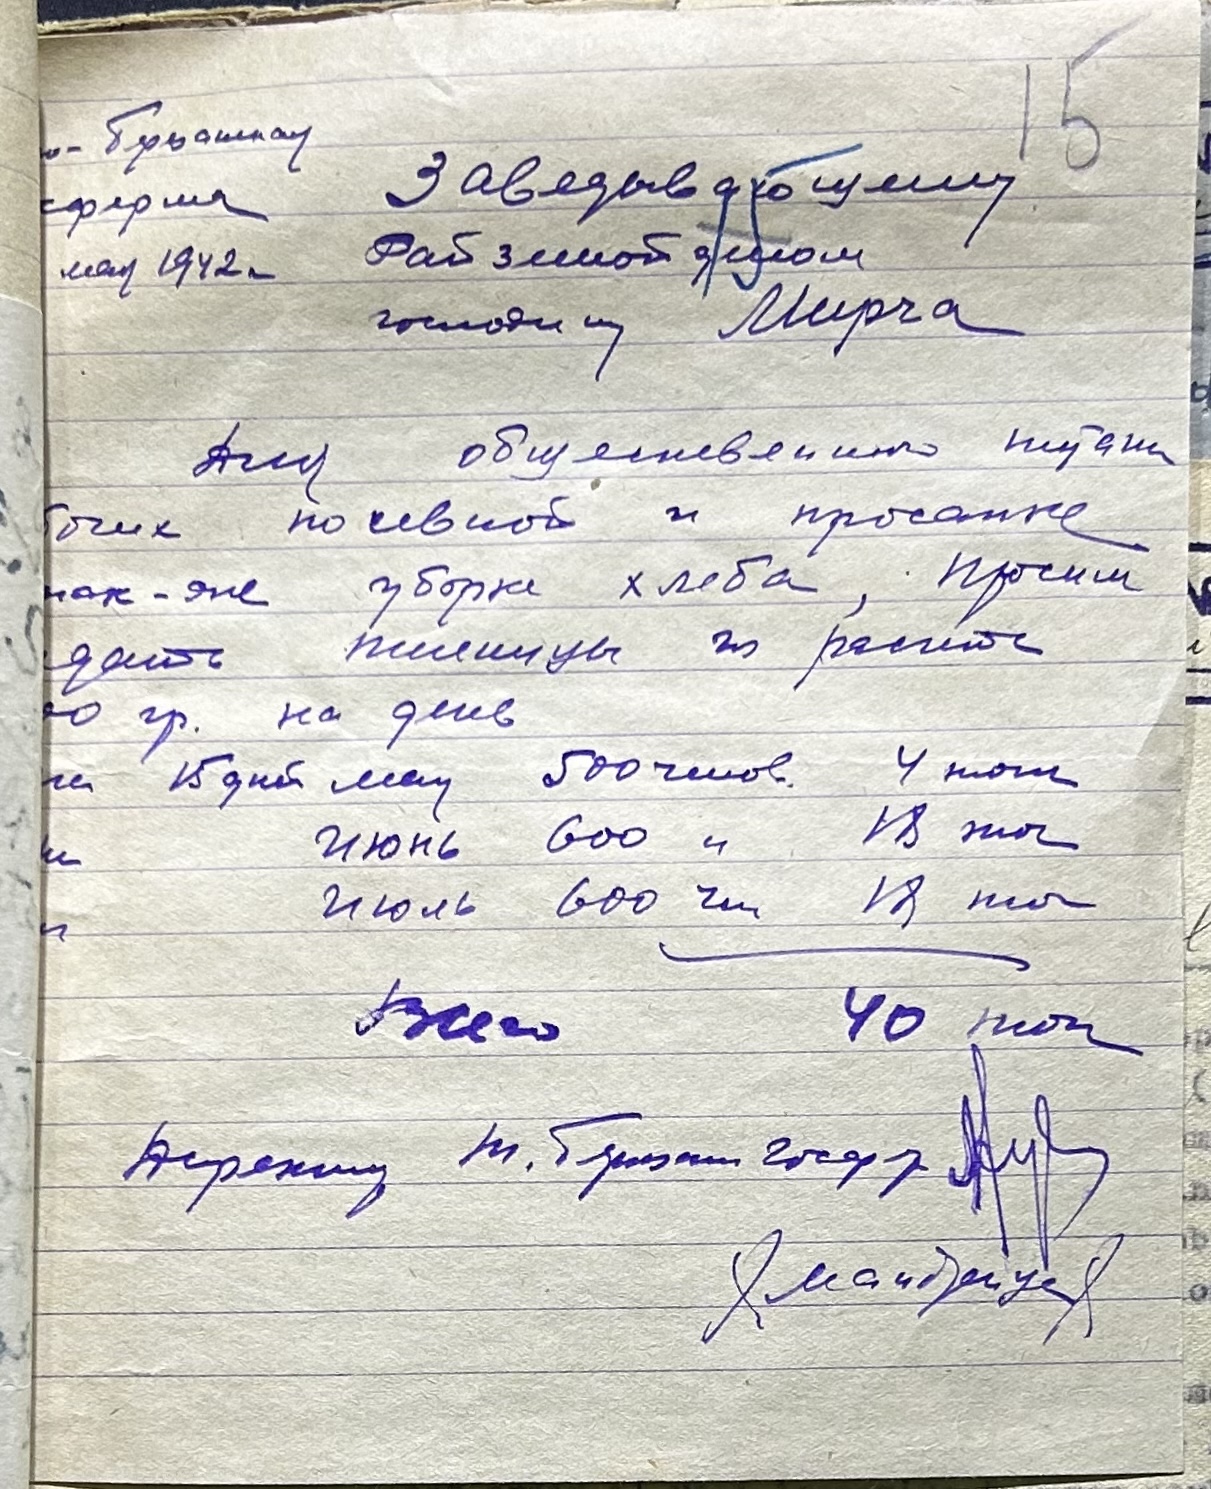 15
ферма
мая 1942 г.
Заведывающему
Райземотделом
господину Мирча
Для общественного питани
бочих посевной и просапке
так-же уборке хлеба, Просим
дать пшеницы из расчета
00 гр. на день
15 дней мая 500 челов. 4 тон
Июнь 600 " 18 тон
Июль 600 чел 18 тон
Всего 40 тон
Директор